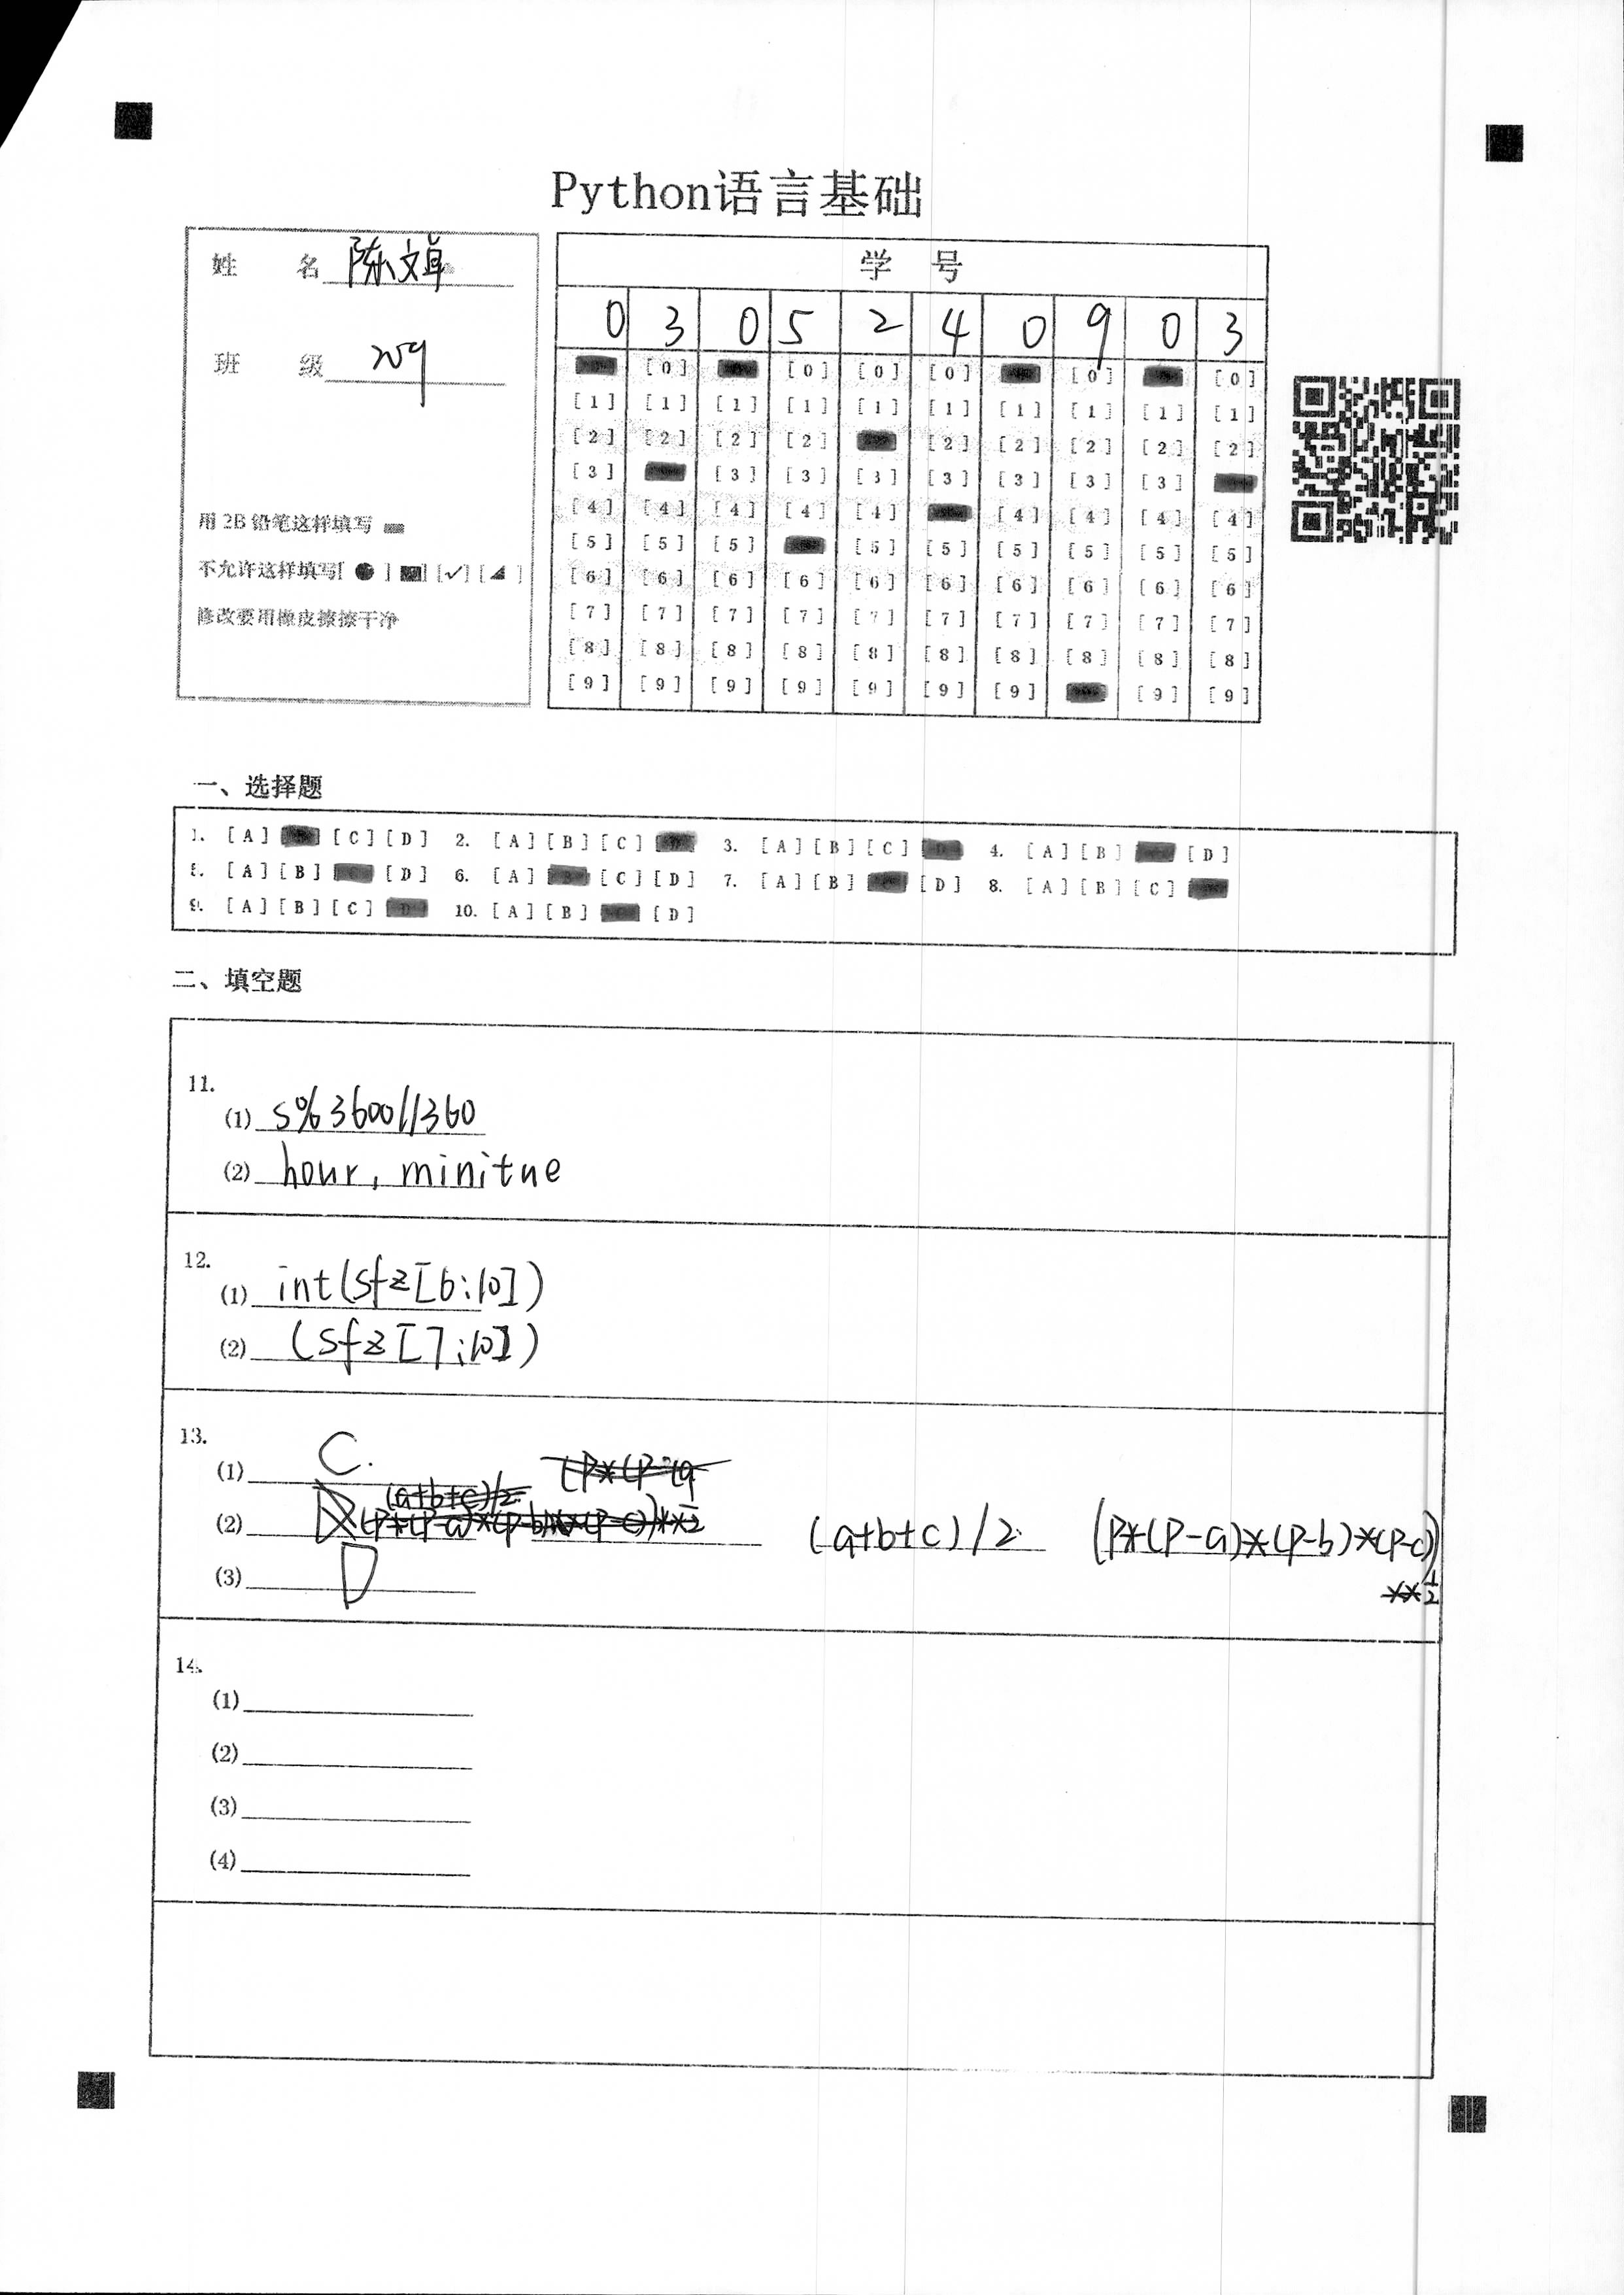 Python语言基础
姓 名 陈文卓
班 级 209
用 2B 铅笔这样填写
不允许这样填写[ ● ] [■] [✓] [◢ ]
修改要用橡皮擦擦干净
学 号
0 3 0 5 2 4 0 9 0 3
[0] [0] [0] [0] [0] [0]
[1] [1] [1] [1] [1] [1] [1] [1] [1] [1]
[2] [2] [2] [2] [2] [2] [2] [2] [2]
[3] [3] [3] [3] [3] [3] [3] [3]
[4] [4] [4] [4] [4] [4] [4] [4] [4]
[5] [5] [5] [5] [5] [5] [5] [5] [5]
[6] [6] [6] [6] [6] [6] [6] [6] [6] [6]
[7] [7] [7] [7] [7] [7] [7] [7] [7] [7]
[8] [8] [8] [8] [8] [8] [8] [8] [8] [8]
[9] [9] [9] [9] [9] [9] [9] [9] [9]
一、选择题
1. [A] [C] [D] 2. [A] [B] [C] 3. [A] [B] [C] 4. [A] [B] [D]
5. [A] [B] [D] 6. [A] [C] [D] 7. [A] [B] [D] 8. [A] [B] [C]
9. [A] [B] [C] 10. [A] [B] [D]
二、填空题
11.
(1) s%3600//360
(2) hour, minitue
12.
(1) int(sfz[6:10])
(2) (sfz[7:10])
13.
(1) C.
(2) (a+b+c)/2 (P*(P-a)*(P-b)*(P-c))
**1/2
(3) D
14.
(1)
(2)
(3)
(4)